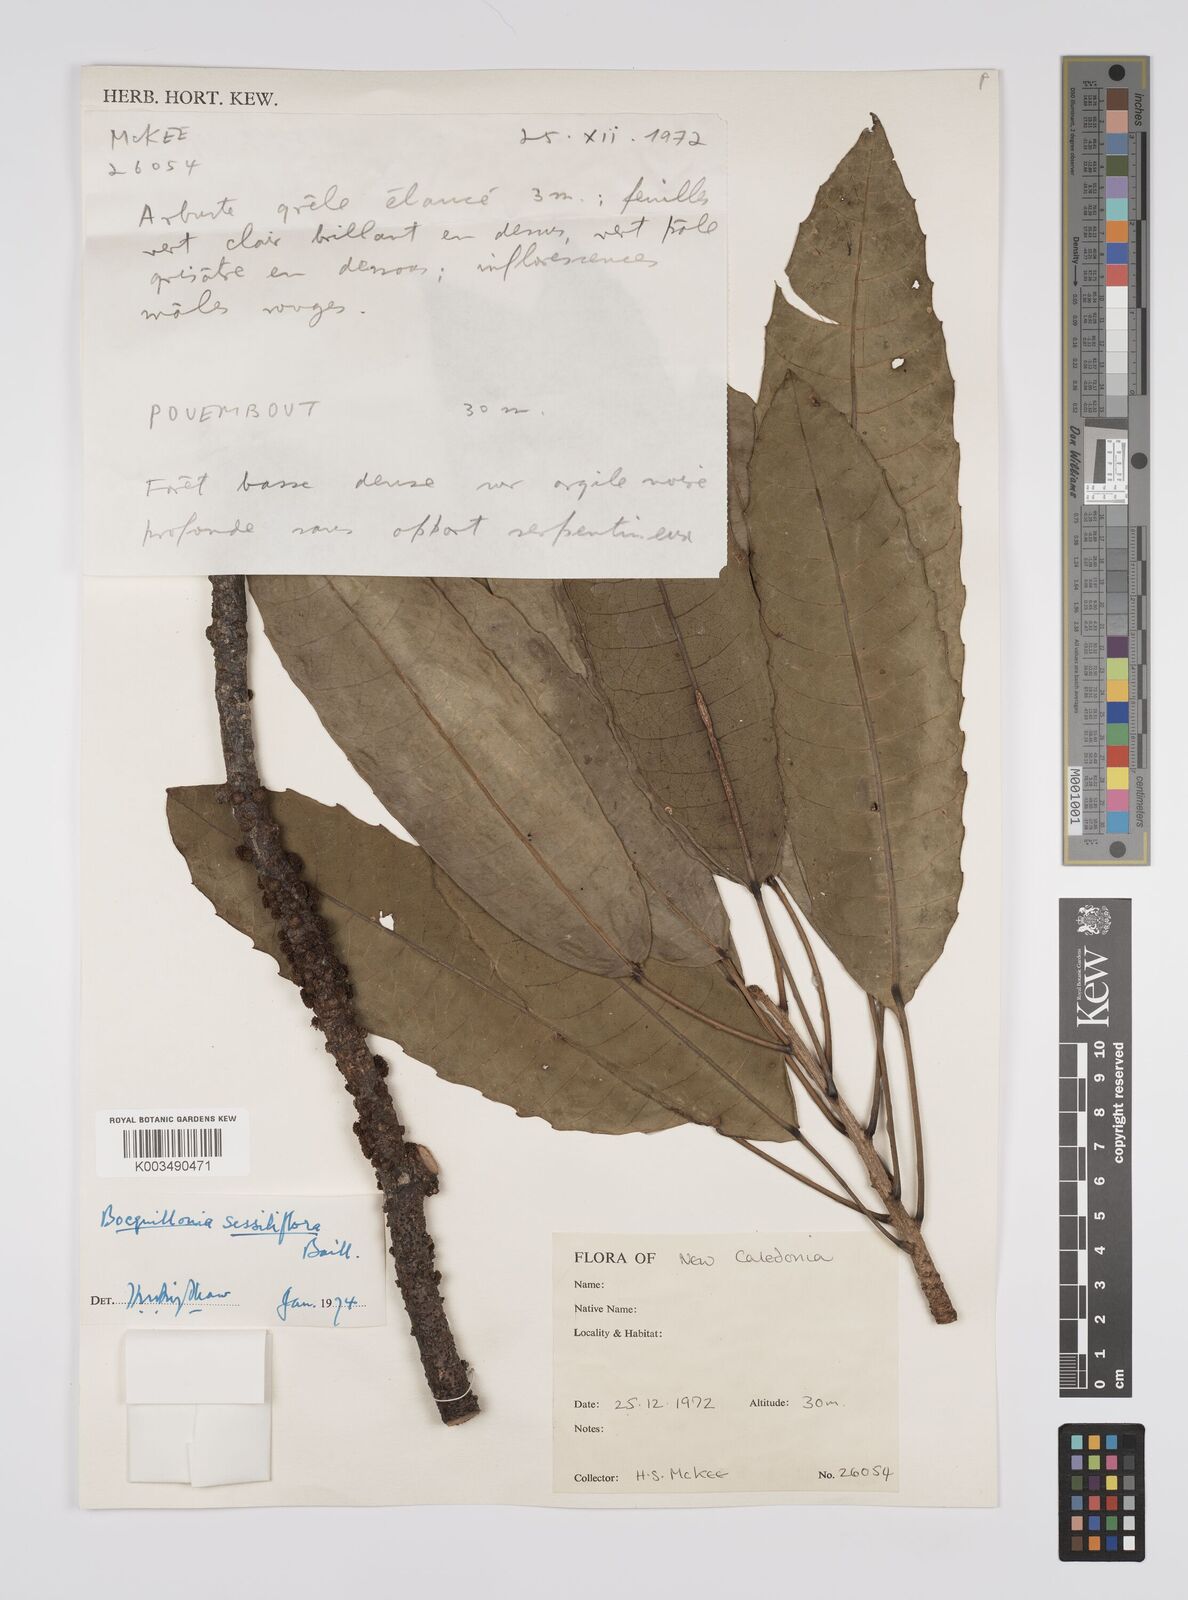 HERB. HORT. KEW.
McKEE 25. XII. 1972
26054
Arbuste grêle élancé 3 m.; feuilles
vert clair brillant en dessus, vert pâle
grisâtre en dessous; inflorescences
mâles rouges.
POUEMBOUT 30 m.
Forêt basse dense sur argile noire
profonde sans apport serpentineux
ROYAL BOTANIC GARDENS KEW
K003490471
Bocquillonia sessiliflora
Baill.
DET. Jan. 1974
FLORA OF New Caledonia
Name:
Native Name:
Locality & Habitat:
Date: 25.12.1972 Altitude: 30m.
Notes:
Collector: H.S. McKEE No. 26054
inches
Don Williams
M001001
centimeters
Royal Botanic Gardens
Kew
0 1 2 3 4 5 6 7 8 9 10
cm
copyright reserved